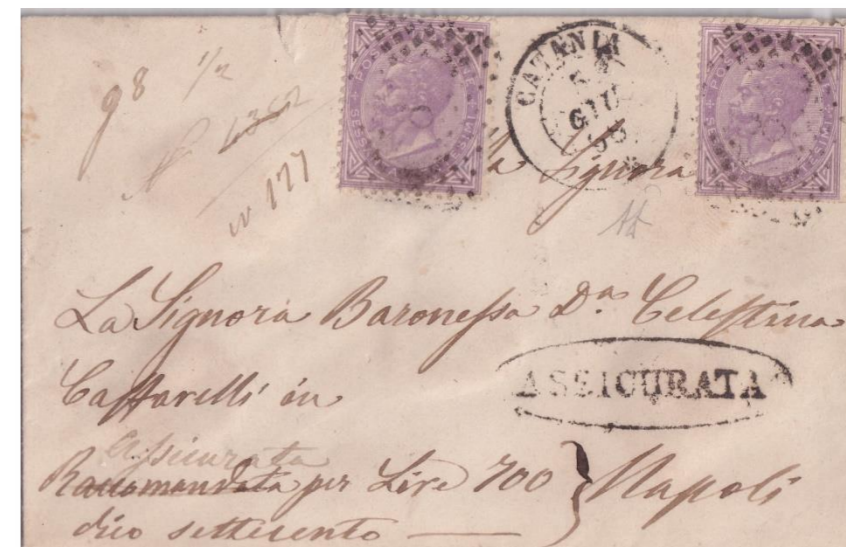 98 1/2
N 1362
w 177
CATANIA
5
GIU
Alla Signora
La Signora Baronessa D.ª Celestina
Caffarelli in
ASSICURATA
Assicurata
Raccomandata per Lire 700 } Napoli
dico settecento